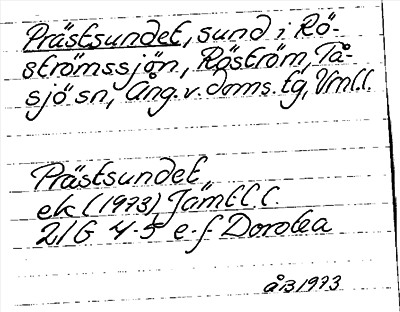 Prästsundet, sund i Rö-
strömssjön, Röström, Tå-
sjö sn, Ång. v. doms. tg, Vrnl.l.
Prästsundet
ek (1973) Jämtl.l.
21G 4-5 e-f Dorotea
åB 1973